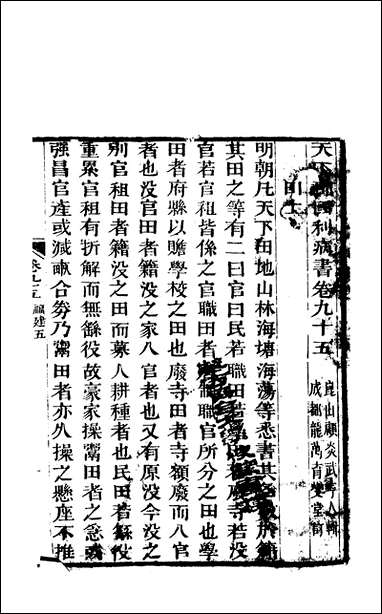 天下郡國利病書卷九十五
崑山顧炎武寧人輯
成都龍萬育燮堂訂
田土
明朝凡天下田地山林海塘海蕩等悉書其名數於籍
其田之等有二曰官曰民若職田若學田若廢寺若沒
官若官租皆係之官職田者職官所分之田也學
田者府縣以贍學校之田也廢寺田者寺額廢而入官
者也沒官田者籍沒之家入官者也又有原沒今沒之
別官租田者籍沒之田而募人耕種者也民田若餘役
重累官租有折解而無餘役故豪家操鬻田者之急
強昌官產或減畝合券乃鬻田者亦久操之懸座不推
卷九十五 福建五